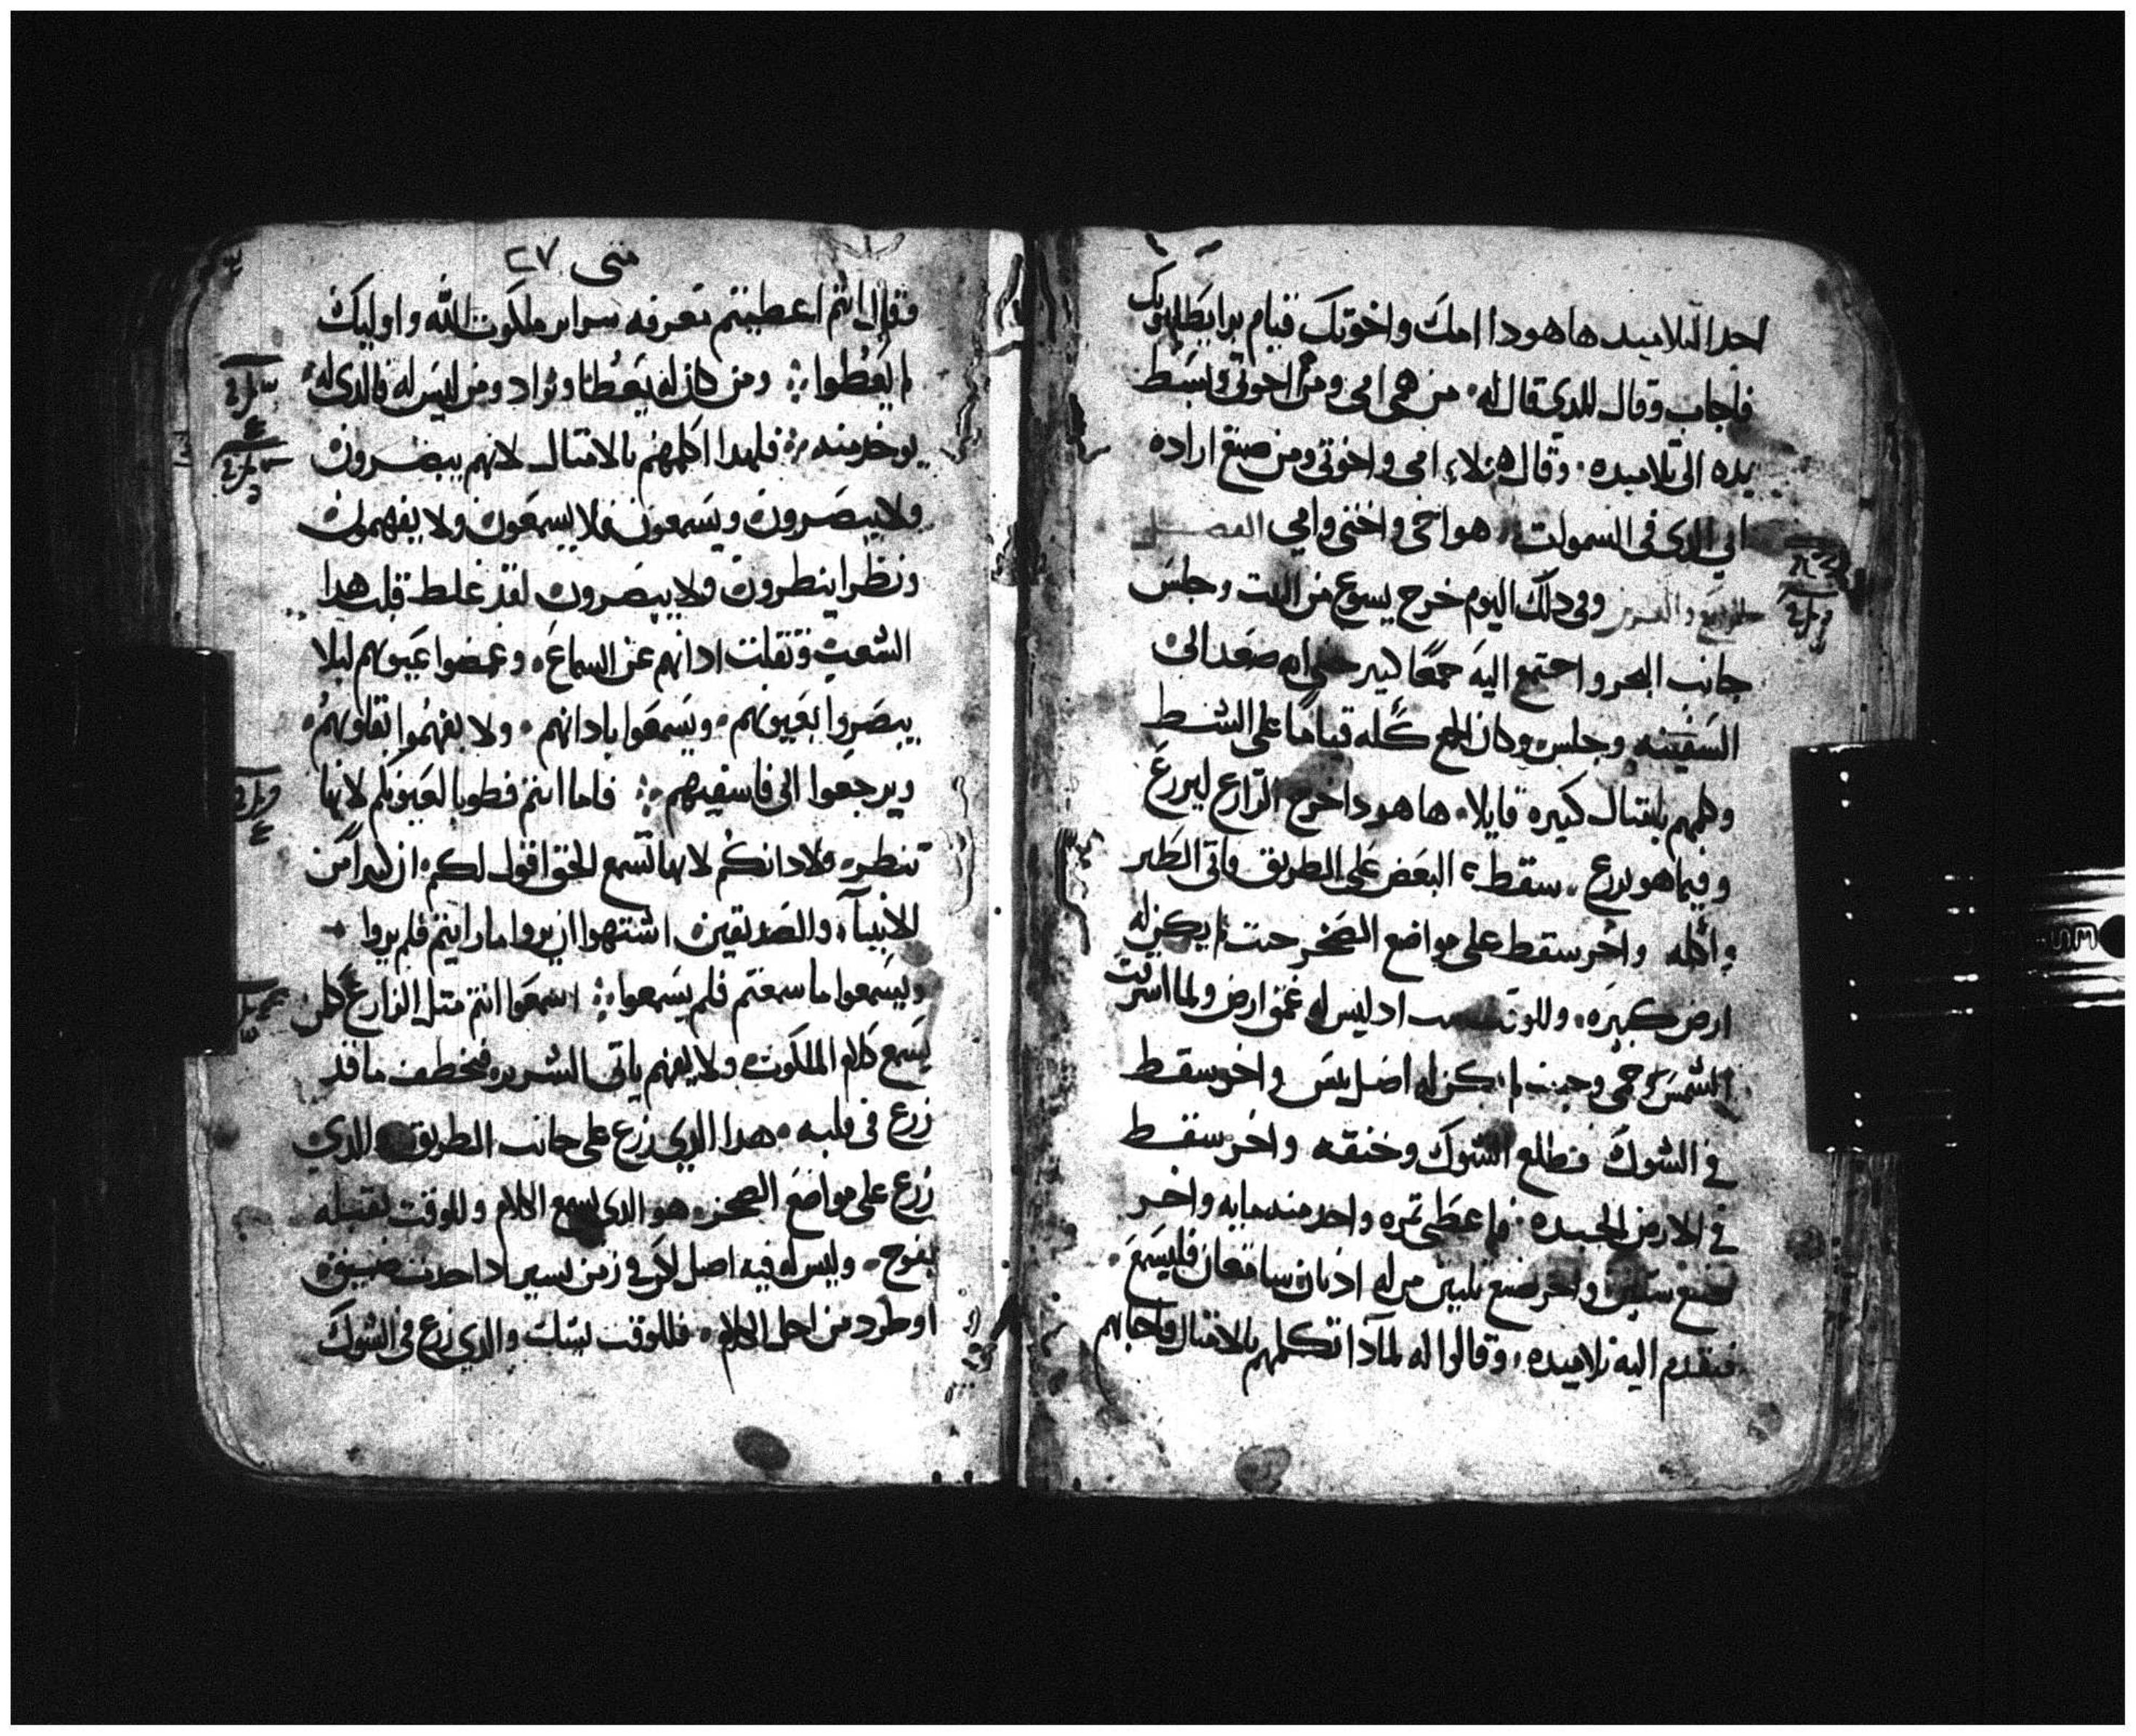 احد التلاميد هاهودا امك واخوتك قيام برا يطلبونك
فاجاب وقال للدي قال له من هي امي ومن اخوتي وبسط
يده الى تلاميده وقال هولاء امي واخوتي ومن صنع اراده
ابي الدي في السموات هو اخي واختي وامي الفصل
وفي دلك اليوم خرج يسوع من البيت وجلس
جانب البحر واجتمع اليه جمعًا كبير حتى انه صعد الى
السفينه وجلس وكان الجمع كله قيامًا على الشط
وكلمهم بامتال كتيره قايلا ها هودا خرج الزارع ليزرع
وفيما هو يزرع سقط البعض على الطريق واتى الطير
واكله واخر سقط على مواضع الصخر حيت لم يكن له
ارض كبيره وللوقت اد ليس له عمق ارض ولما اشرقت
الشمس وحيت لم يكن له اصل يبس واخر سقط
في الشوك فطلع الشوك وخنقه واخر سقط
في الارض الجيده فاعطى تمره واحد منه مايه واخر
ستين واخر صنع تلتين من له ادنان سامعتان فليسمع
فتقدم اليه تلاميده وقالوا له لمادا تكلمهم بالامتال فاجابهم
متى ٢٧
وقال انتم اعطيتم معرفه سراير ملكوت الله واوليك
لم يعطوا ومن كان له يعطا ويزاد ومن ليس له فالدي له
يوخد منه فلهدا اكلمهم بالامتال لانهم يبصرون
ولا يبصرون ويسمعون فلا يسمعون ولا يفهمون
ونظرا ينظرون ولا يبصرون لقد غلط قلب هدا
الشعب وتقلت ادانهم عن السماع وغمضوا عيونهم ليلا
يبصروا بعيونهم ويسمعوا بادانهم ولا يفهموا بقلوبهم
ويرجعوا الى فاشفيهم فاما انتم فطوبا لعيونكم لانها
تنظر ولادانكم لانها تسمع الحق اقول لكم ان كتيرا من
الانبياء والصديقين اشتهوا ان يروا ما رايتم فلم يروا
ويسمعوا ما سمعتم فلم يسمعوا اسمعوا انتم متل الزارع كل من
يسمع كلام الملكوت ولا يفهم ياتي الشرير فيخطف ما قد
زرع في قلبه هدا الدي زرع على جانب الطريق والدي
زرع على مواضع الصخر هو الدي يسمع الكلام وللوقت يقبله
بفرح وليس له فيه اصل لكن في زمن يسير ادا حدت ضيق
او طرد من اجل الكلام فللوقت يشك والدي زرع في الشوك